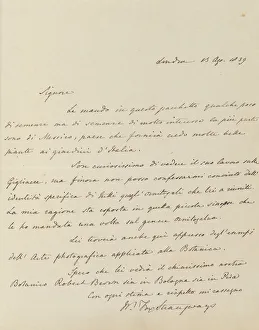 Londra 13 Ago. 1839
Signore
Le mando in questo pacchetto qualche poco
di semenze ma di semenze di molto interesse la più parte
sono di Messico, paese che fornirà credo molte belle
piante ai giardini d'Italia.
Son curiosissimo di vedere il suo lavoro sulle
Gigliacee: ma finora non posso confessarmi convinto dell'
identità specifica di tutti quegli che lei a uniti
La mia ragione sta esposta in quella piccola che
le ho mandata una volta sul genere
Lei troverà anche qui appresso degl'esempi
dell'Arte photografica applicata alla Botanica.
Spero che lei vedrà il chiarissimo nostro
Botanico Robert Brown sia in Bologna sia in Pisa
Con ogni stima e rispetto mi rassegno
W. F. Strangways